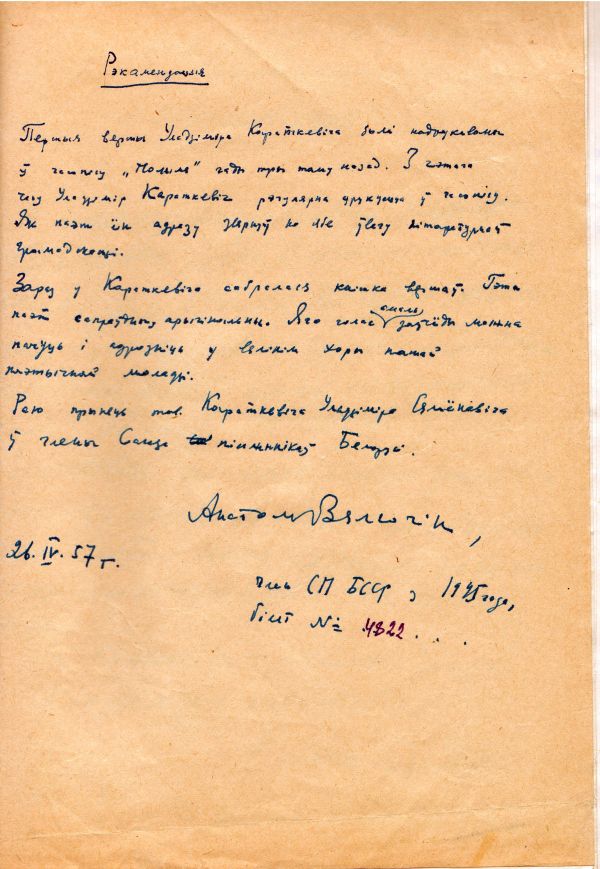 Рэкамендацыя
Першыя вершы Уладзіміра Караткевіча былі надрукаваны
ў часопісу „Полымя“ гады тры таму назад. З гэтага
часу Уладзімір Караткевіч рэгулярна друкуецца ў часопісу.
Як паэт ён адразу звярнуў на сябе ўвагу літаратурнай
грамадскасці.
Зараз у Караткевіча сабралася кніжка вершаў. Гэта
паэт сапраўдны, арыгінальны. Яго голас амаль заўсёды можна
пачуць і адрозніць у вялікім хоры нашай
паэтычнай моладзі.
Раю прыняць тав. Караткевіча Уладзіміра Сямёнавіча
ў члены Саюза пісьменнікаў Беларусі.
Анатоль Вялюгін,
26. IV. 57 г.
член СП БССР з 1945 года,
білет № 4822...